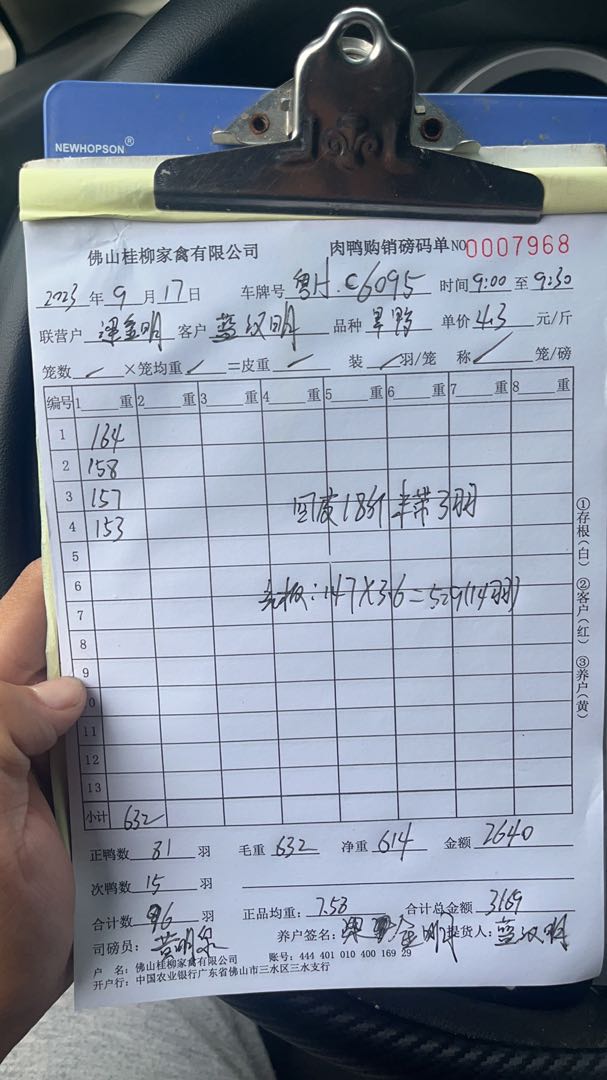 NEWHOPSON®
佛山桂柳家禽有限公司 肉鸭购销磅码单 NO 0007968
2023 年 9 月 17 日 车牌号 粤H·C6095 时间 9:00 至 9:30
联营户 金明 客户 蓝汉明 品种 旱鸭 单价 4.3 元/斤
笼数 ✓ ×笼均重 ✓ =皮重 ✓ 装 ✓ 羽/笼 称 ✓ 笼/磅
编号 1 重 2 重 3 重 4 重 5 重 6 重 7 重 8 重
1 164
2 158
3 157
4 153
5
6
7
8
9
0
11
12
13
回皮18斤 羊带3羽
147×3.6=529(14羽)
小计 632
①存根(白) ②客户(红) ③养户(黄)
正鸭数 81 羽 毛重 632 净重 614 金额 2640
次鸭数 15 羽
合计数 96 羽 正品均重: 7.58 合计总金额 3169
司磅员: 黄明 养户签名: 金明 提货人: 蓝汉明
户 名: 佛山桂柳家禽有限公司 账号: 444 401 010 400 169 29
开户行: 中国农业银行广东省佛山市三水区三水支行